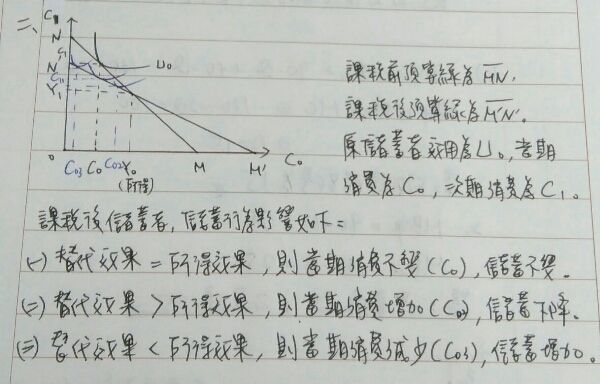 二、
C₁
N
C₁
N'
C₁₁
Y₁
U₀
0
C₀₃ C₀ C₀₂ Y₀ M M' C₀
(所得)
課稅前預算線為MN,
課稅後預算線為M'N'。
原儲蓄者效用為U₀,當期
消費為C₀,次期消費為C₁。
課稅後儲蓄者,儲蓄行為影響如下:
(一)替代效果=所得效果,則當期消費不變(C₀),儲蓄不變。
(二)替代效果>所得效果,則當期消費增加(C₀₂),儲蓄下降。
(三)替代效果<所得效果,則當期消費減少(C₀₃),儲蓄增加。